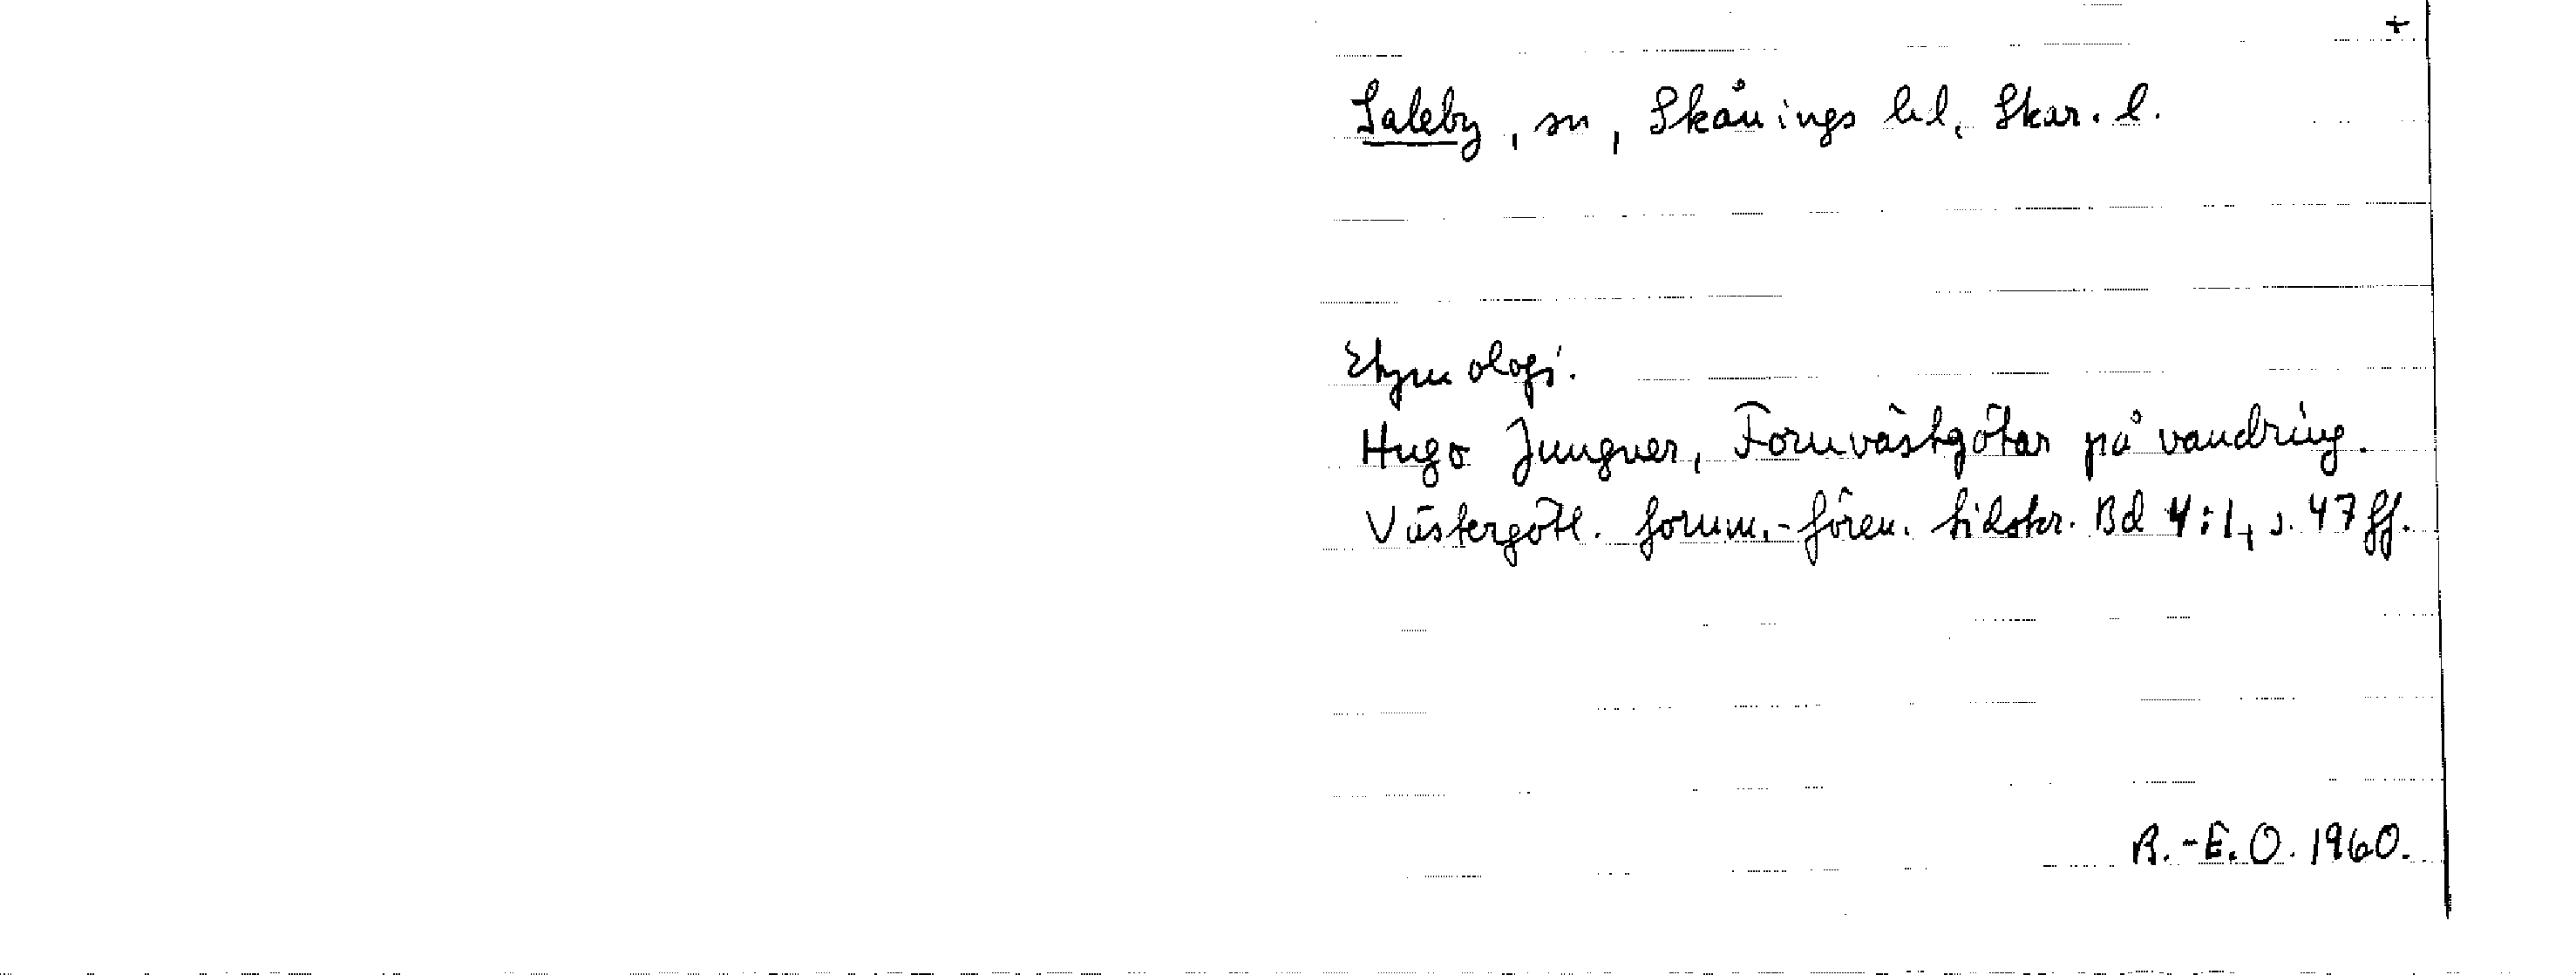 +
Saleby, sn, Skånings hd, Skar. l.
Etymologi.
Hugo Jungner, Fornvästgötar på vandring.
Västergötl. fornm.-fören. tidskr. Bd 4:1, s. 47 ff.
R.-E.O. 1960.